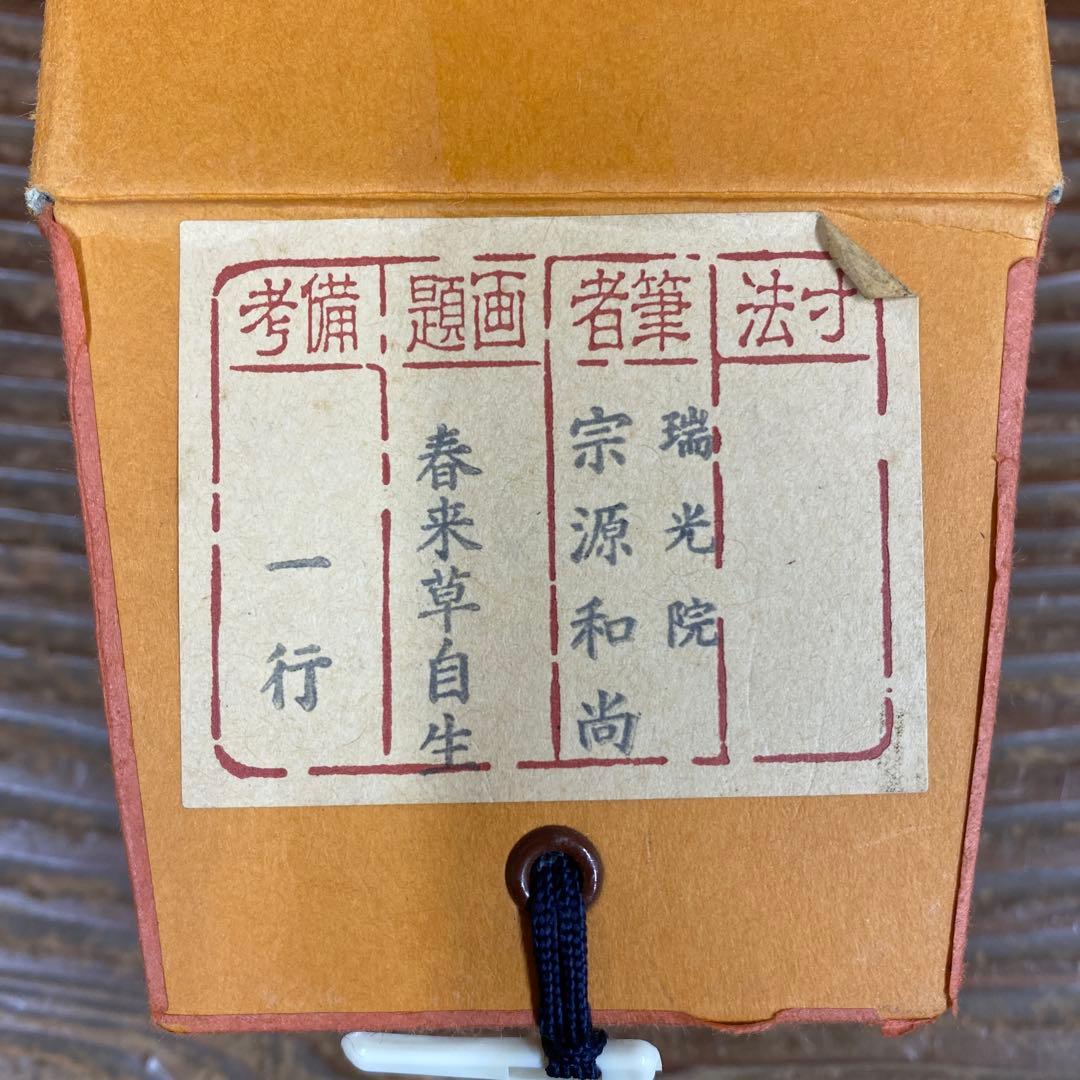 寸法
筆者
瑞光院
宗源和尚
画題
春来草自生
備考
一行